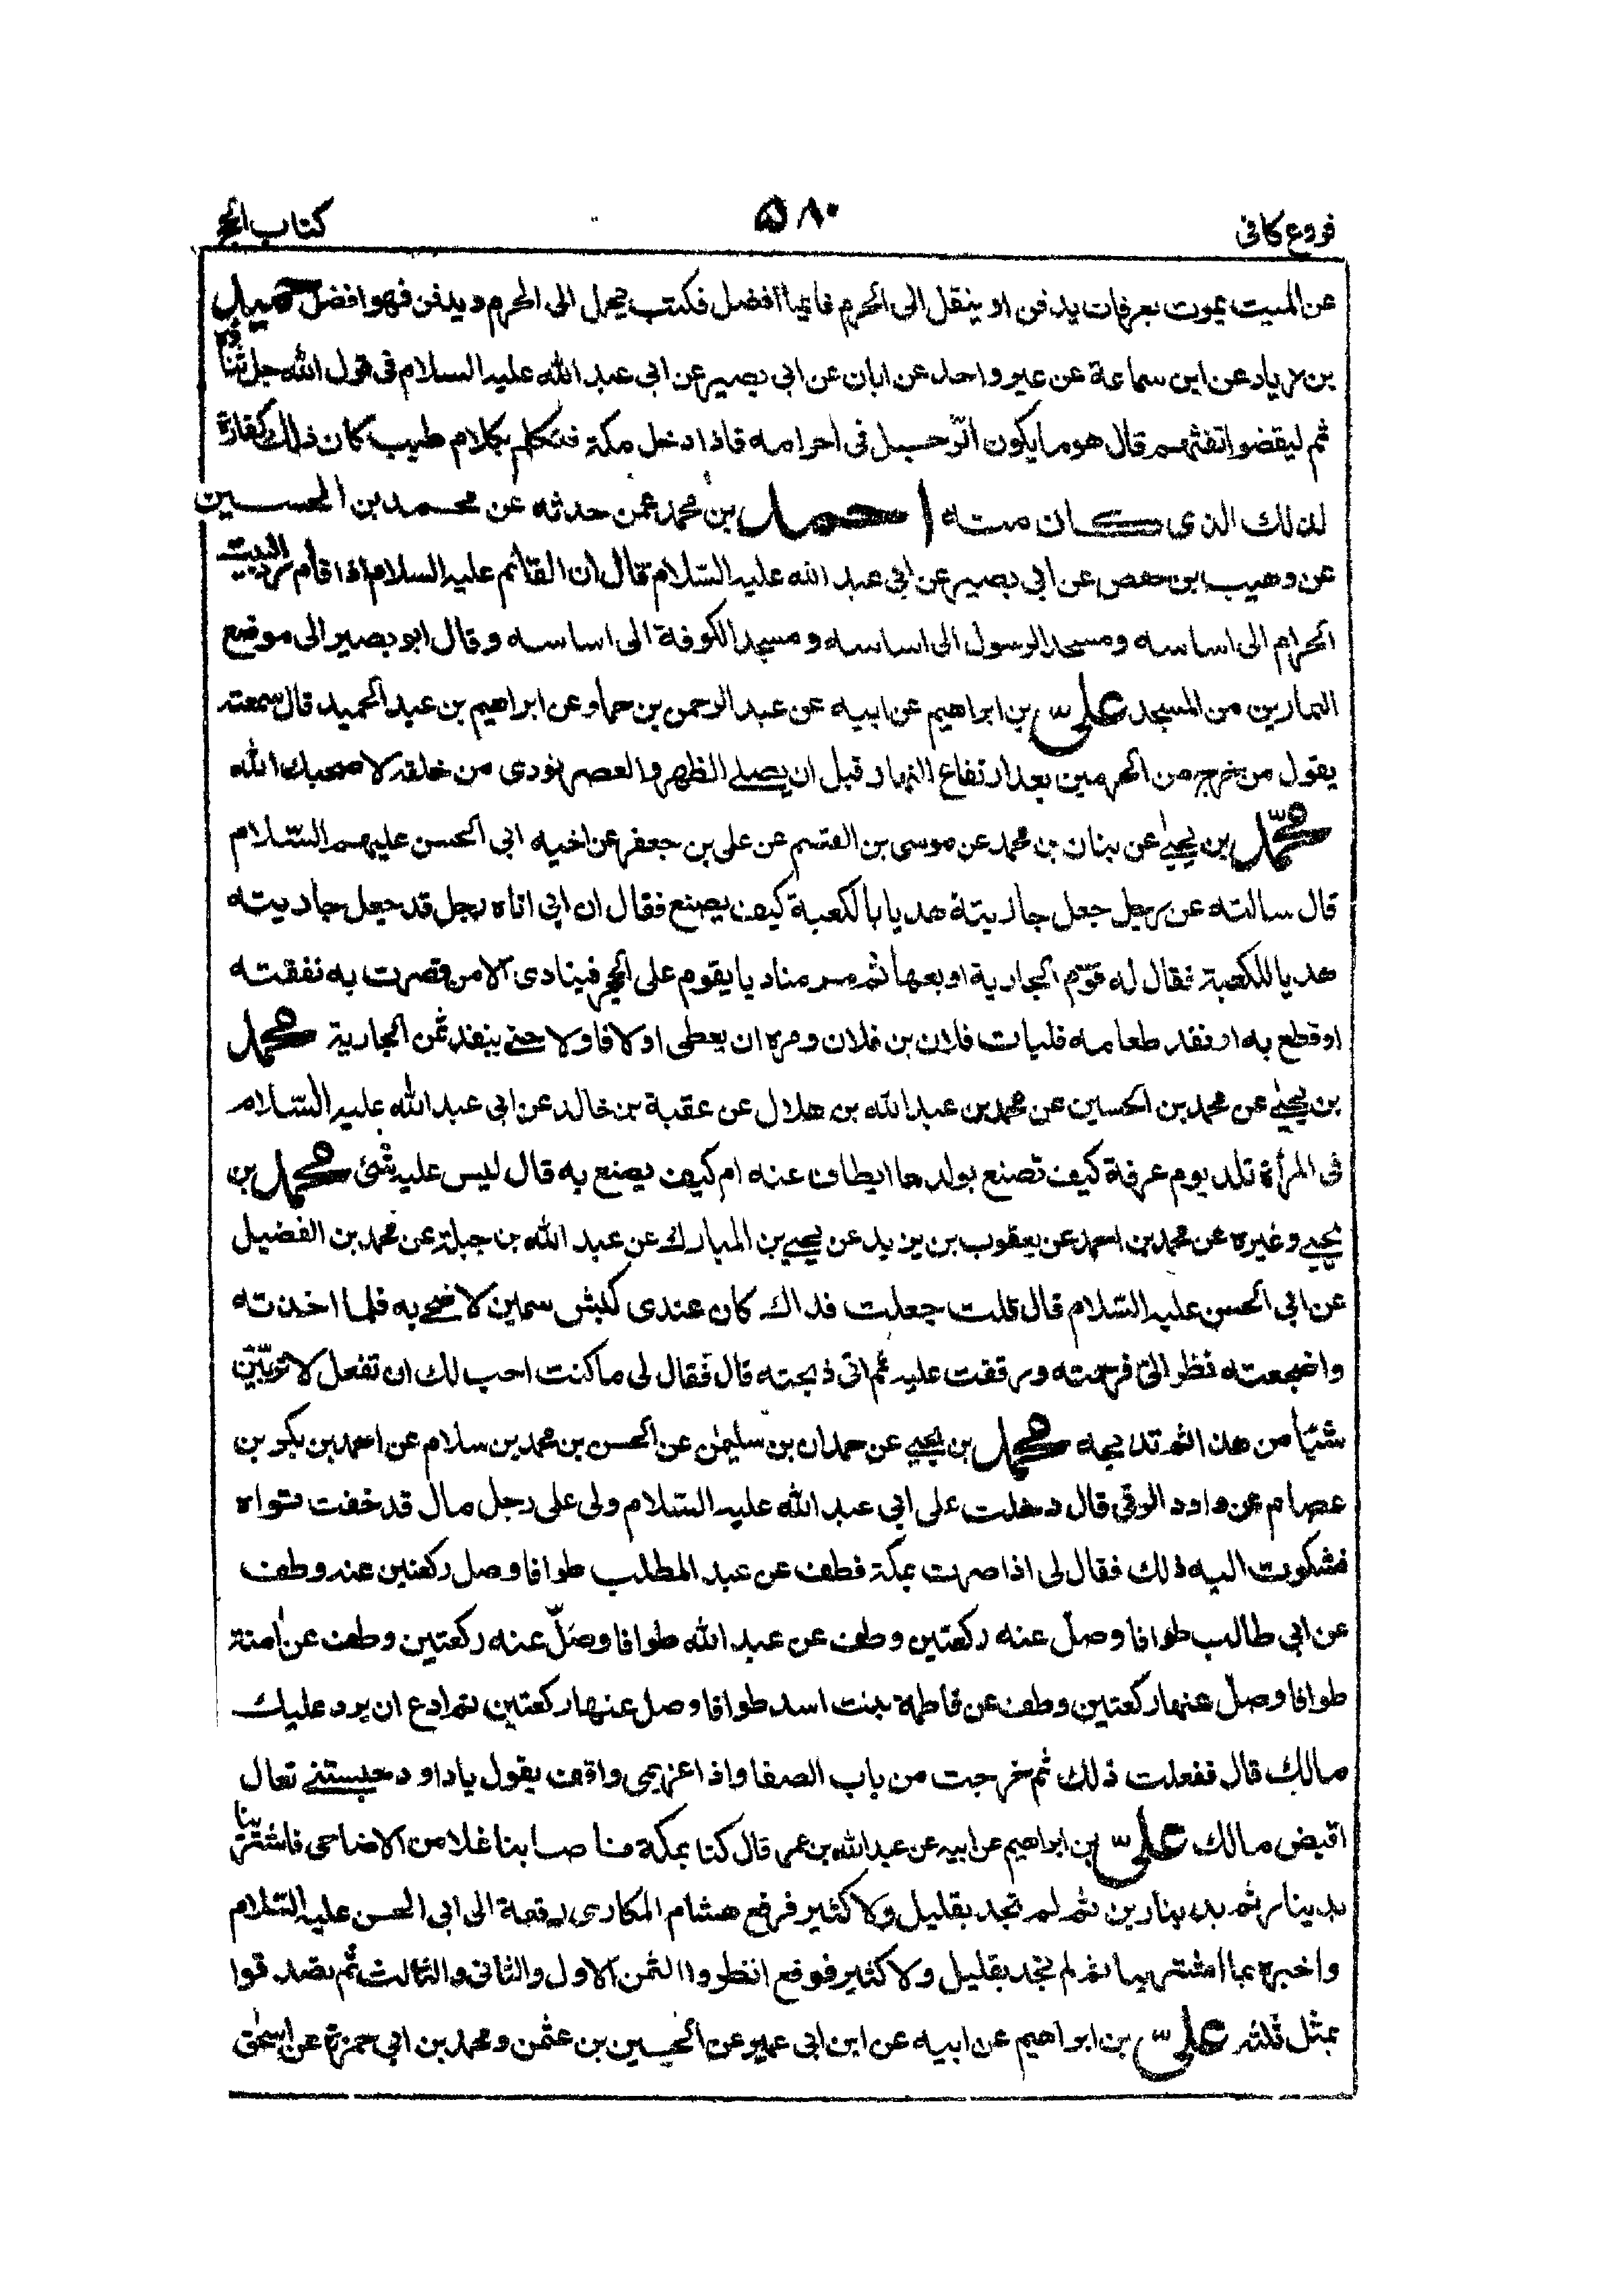 فروع کافی
۵۸۰
کتاب الحج
عن المیت یموت بعرفات یدفن او ینقل الی الحرم فایما افضل فکتب یحمل الی الحرم ویدفن فهو افضل حمید
بن زیاد عن ابن سماعة عن غیر واحد عن ابان عن ابی بصیر عن ابی عبد الله علیه السلام فی قول الله جل ثناؤه
ثم لیقضوا تفثهم قال هو ما یکون الرجل فی احرامه فاذا دخل مکة فتکلم بکلام طیب کان ذلک کفارة
لذلک الذی کان منه احمد بن محمد عمن حدثه عن محمد بن الحسین
عن وهیب بن حفص عن ابی بصیر عن ابی عبد الله علیه السلام قال ان القائم علیه السلام اذا قام رد البیت
الحرام الی اساسه ومسجد الرسول الی اساسه ومسجد الکوفة الی اساسه وقال ابو بصیر الی موضع
التمارین من المسجد علی بن ابراهیم عن ابیه عن عبد الرحمن بن حماد عن ابراهیم بن عبد الحمید قال سمعته
یقول من خرج من الحرمین بعد ارتفاع النهار قبل ان یصلی الظهر والعصر نودی من خلفه لا صحبک الله
محمد بن یحیی عن بنان بن محمد عن موسی بن القسم عن علی بن جعفر عن اخیه ابی الحسن علیهم السلام
قال سالته عن رجل جعل جاریتة هدیا بالکعبة کیف یصنع فقال ان ابی اتاه رجل قد جعل جاریته
هدیا للکعبة فقال له قوم الجاریة او بعها ثم مر منادیا یقوم علی الحجر فینادی الا من قصرت به نفقته
او قطع به او نفد طعامه فلیات فلان بن فلان ومره ان یعطی اولا فاولا حتی ینفد ثمن الجاریة محمد
بن یحیی عن محمد بن الحسین عن محمد بن عبد الله بن هلال عن عقبة بن خالد عن ابی عبد الله علیه السلام
فی المرأة تلد یوم عرفة کیف تصنع بولدها ایطاف عنه ام کیف یصنع به قال لیس علیه شئ محمد بن
یحیی وغیره عن محمد بن احمد عن یعقوب بن یزید عن یحیی بن المبارک عن عبد الله بن جبلة عن محمد بن الفضیل
عن ابی الحسن علیه السلام قال قلت جعلت فداک کان عندی کبش سمین لاضحی به فلما اخذته
واضجعته نظر الی فرحمته ورققت علیه ثم انی ذبحته قال فقال لی ما کنت احب لک ان تفعل لا تربین
شیئا من هذا ثم تذبحه محمد بن یحیی عن حمدان بن سلیمن عن الحسن بن محمد بن سلام عن احمد بن بکر بن
عصام عن داود الرقی قال دخلت علی ابی عبد الله علیه السلام ولی علی رجل مال قد خفت تواه
فشکوت الیه ذلک فقال لی اذا صرت بمکة فطف عن عبد المطلب طوافا وصل رکعتین عنه وطف
عن ابی طالب طوافا وصل عنه رکعتین وطف عن عبد الله طوافا وصل عنه رکعتین وطف عن امنة
طوافا وصل عنها رکعتین وطف عن فاطمة بنت اسد طوافا وصل عنها رکعتین ثم ادع ان یرد علیک
مالک قال ففعلت ذلک ثم خرجت من باب الصفا واذا غریمی واقف یقول یا داود حبستنی تعال
اقبض مالک علی بن ابراهیم عن ابیه عن عبد الله بن عمر قال کنا بمکة فاصابنا غلا من الاضاحی فاشترینا
بدینار ثم بدینارین ثم لم نجد بقلیل ولا کثیر فرفع هشام المکاری رقعة الی ابی الحسن علیه السلام
واخبره بما اشترینا ثم لم نجد بقلیل ولا کثیر فوقع انظروا الثمن الاول والثانی والثالث ثم تصدقوا
بمثل ثلثه علی بن ابراهیم عن ابیه عن ابن ابی عمیر عن الحسین بن عثمن ومحمد بن ابی حمزة عن اسحق